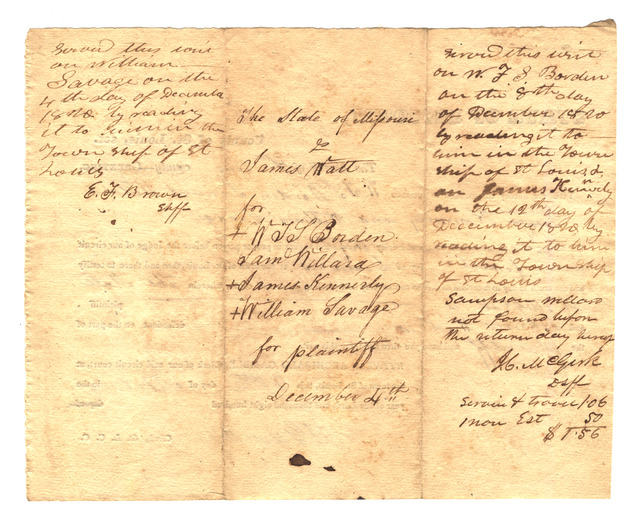 Served this writ
on William
Savage on the
4th day of Decembr
1820 by reading
it to him in the
Township of St
Louis
E. F. Brown
Shff
The State of Missouri
James Watt
for
+ W T S Borden
Sam Willard
+ James Kennerly
+ William Savage
for plaintiff
December 4th
Served this writ
on W. F S Borden
on the 8th day
of December 1820
by reading it to
him in the Town
ship of St Louis &
on James Kennerly
on the 12th day of
December 1820 by
reading it to him
in the Township
of St Louis
Sampson
not found before
the return day hereof
McGirk
Dsff
Service & travel 1 06
1 non Est 50
$ 1.56